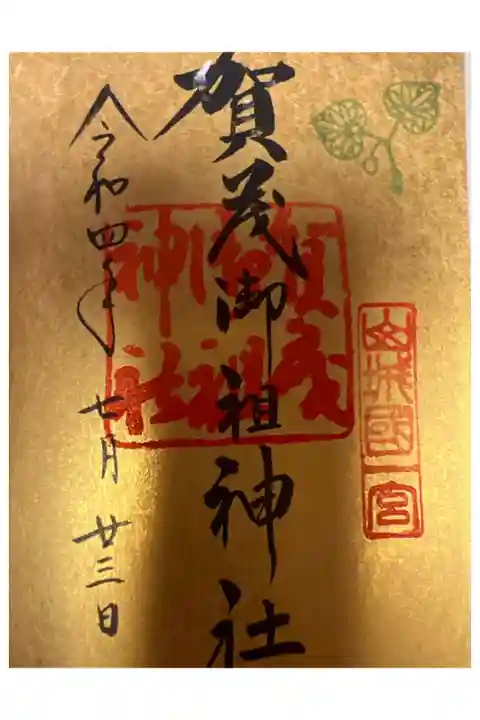 山城國一宮
賀茂御祖神社
賀茂御祖神社
令和四年 七月 廿三日